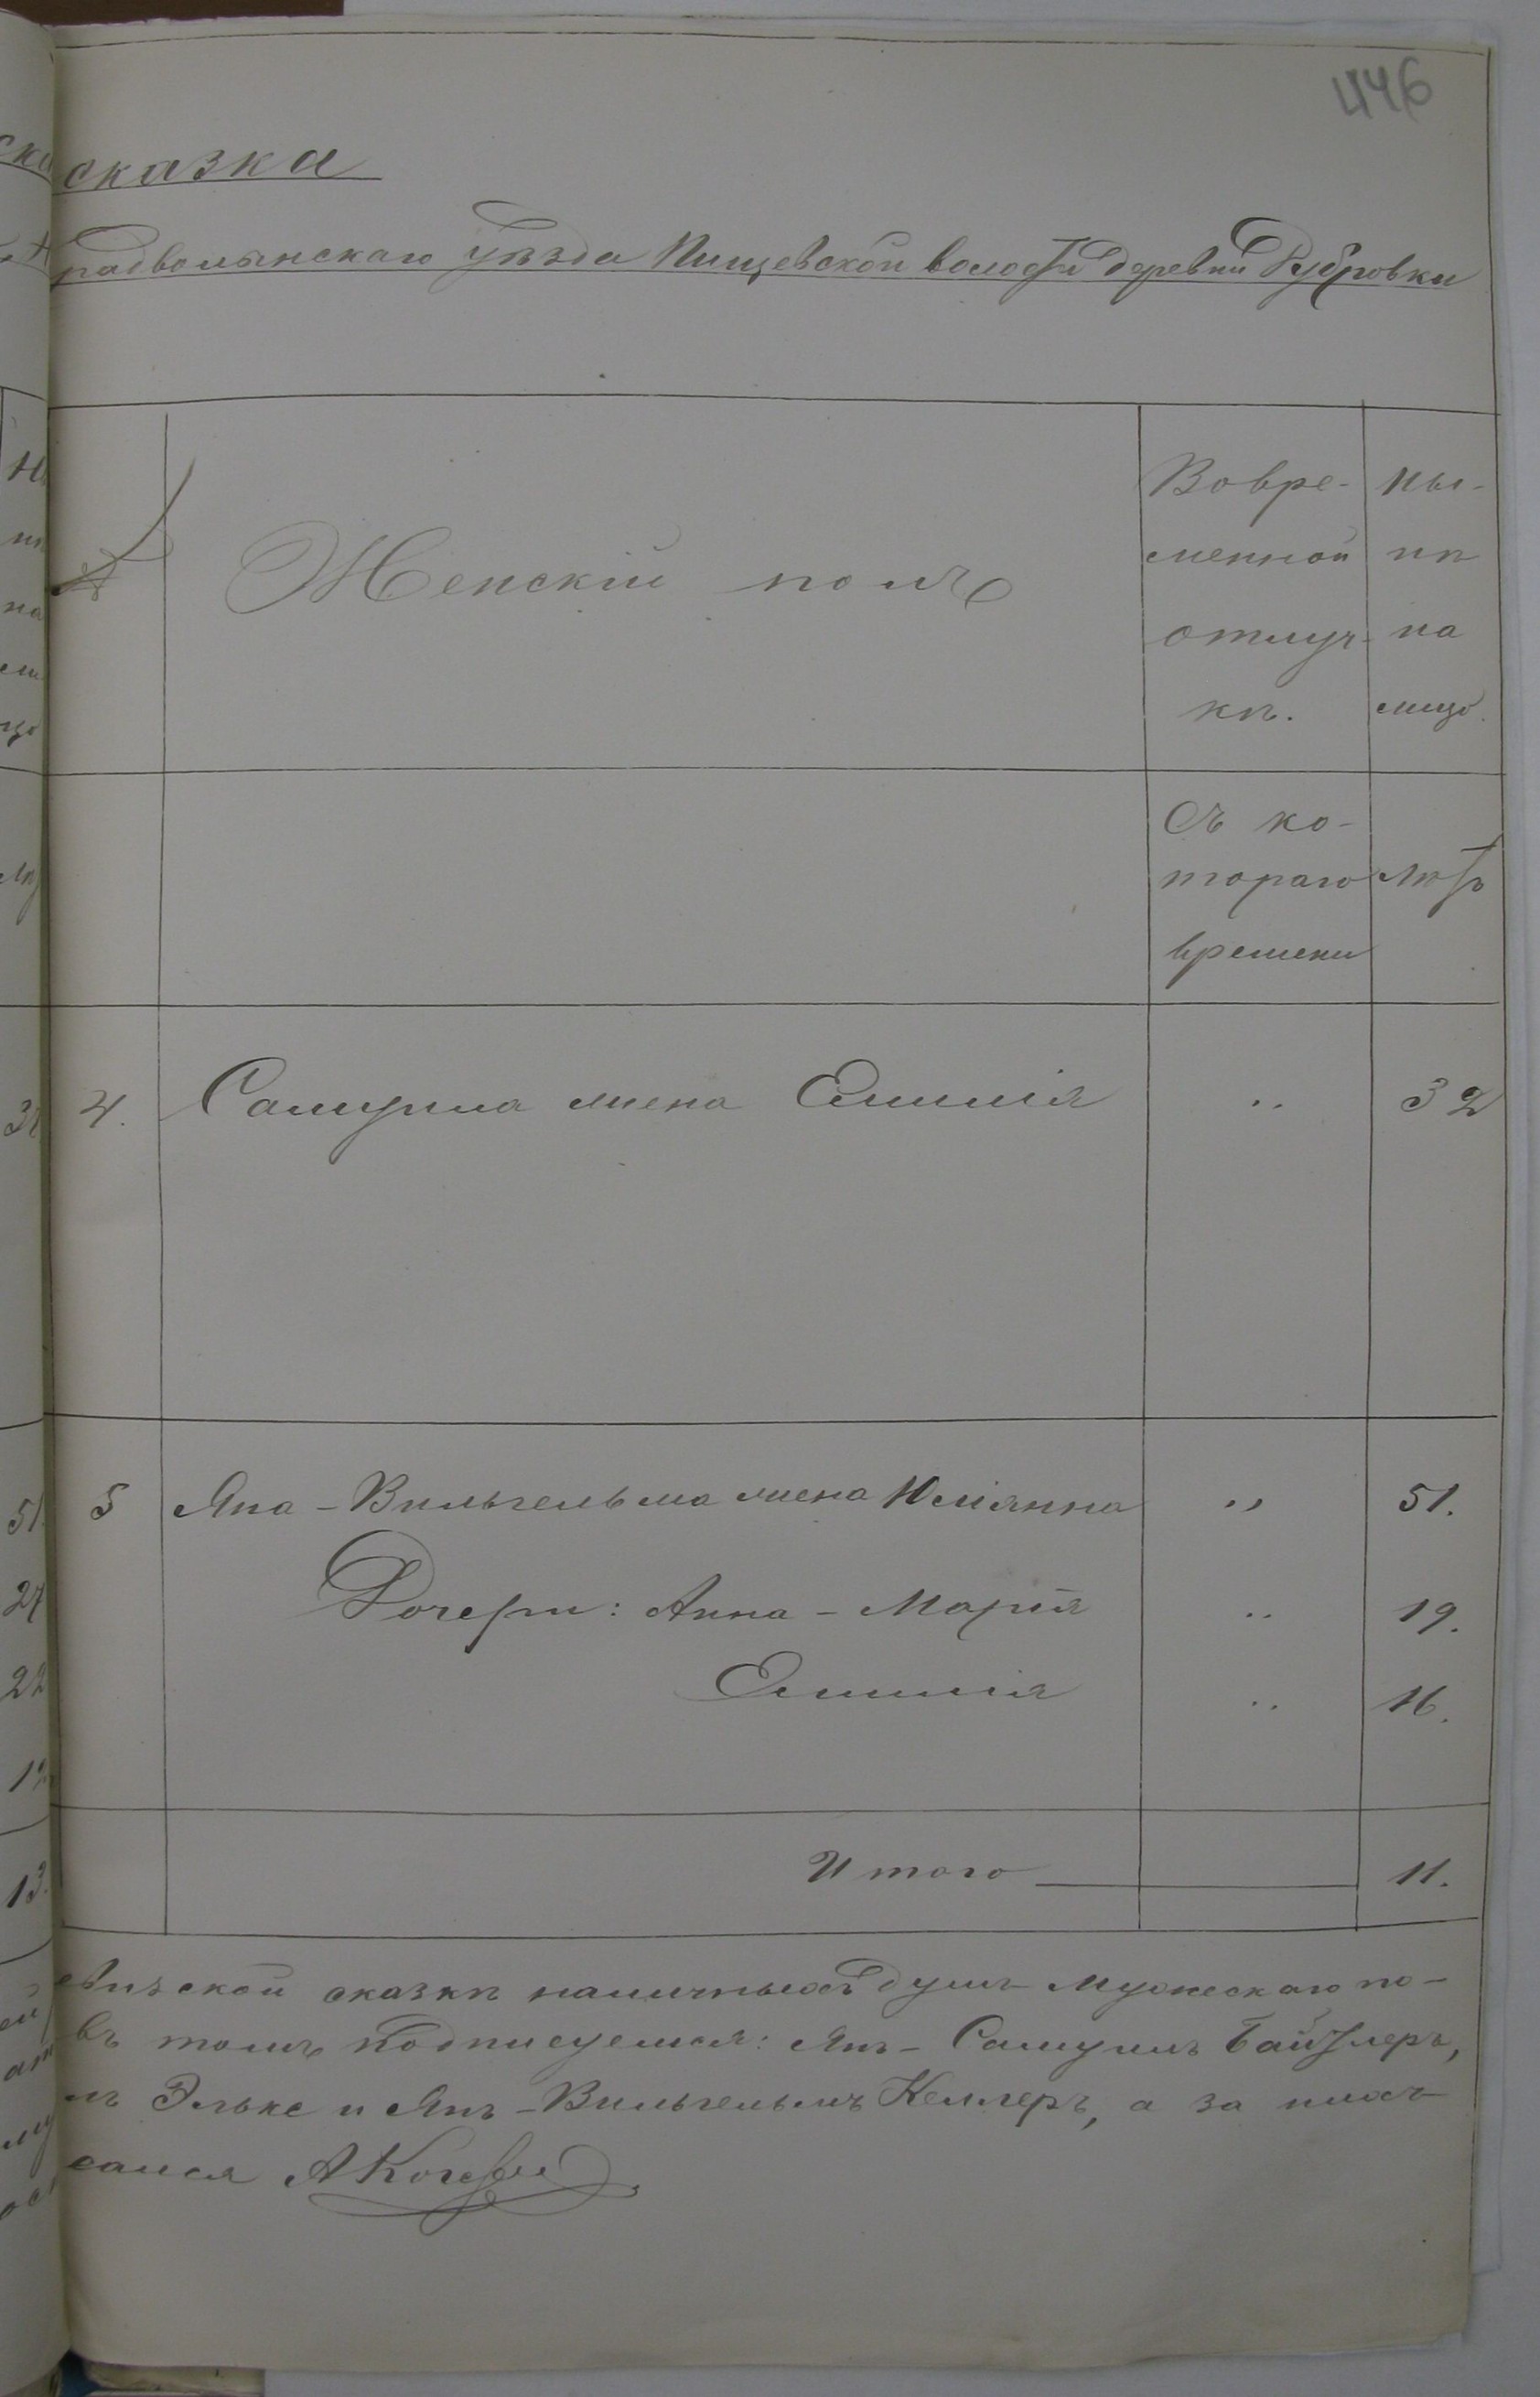 446
сказка
градволынскаго уѣзда Пищевской волости деревни Дубровки
№ Женскій полъ
Вовре- Ны-
менной нѣ
отлуч- на
кѣ. лицо.
Съ ко-
тораго Лѣтъ
времени
4. Самуила жена Емилія " 32
5 Яна-Вильгельма жена Юліянна " 51.
Дочери: Анна-Марія " 19.
Емилія " 16.
Итого 11.
сказкѣ наличныхъ душъ мужескаго по-
въ томъ подписуемся: Янъ-Самуилъ Байзлеръ,
Эльке и Янъ-Вильгельмъ Келлеръ, а за них
сался